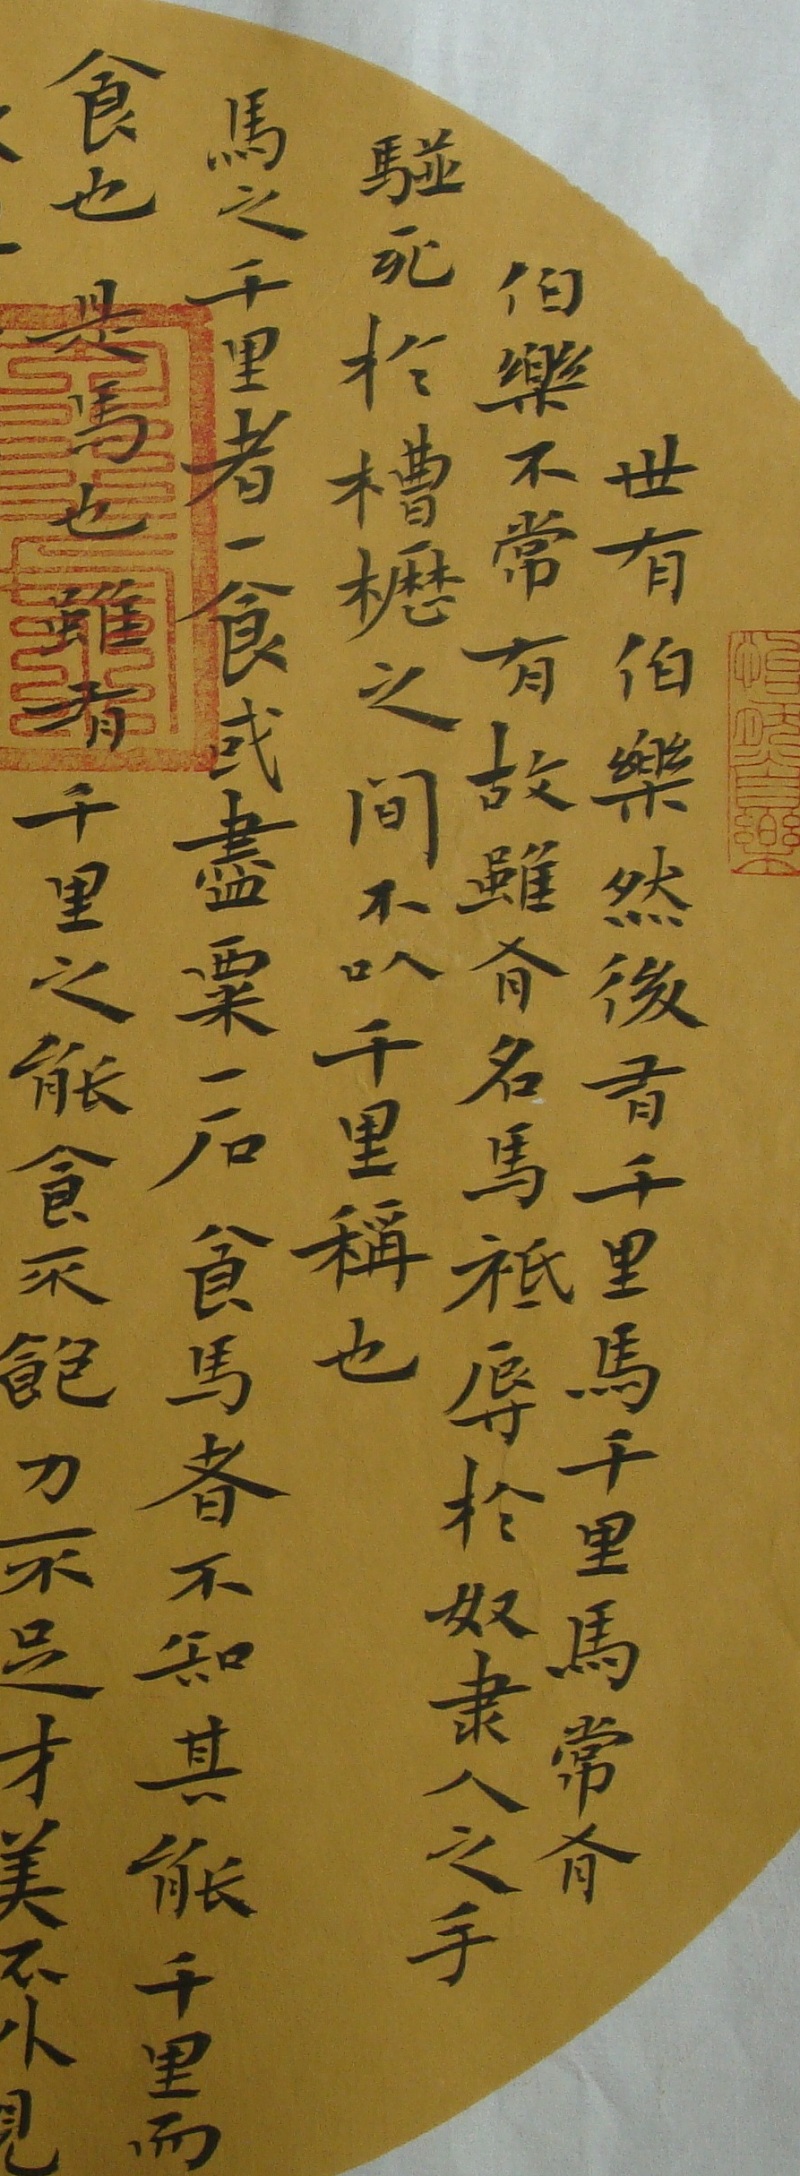 世有伯樂然後有千里馬千里馬常有
伯樂不常有故雖有名馬祗辱於奴隶人之手
駢死於槽櫪之間不以千里稱也
馬之千里者一食或盡粟一石食馬者不知其能千里而
食也是馬也雖有千里之能食不飽力不足才美不外見